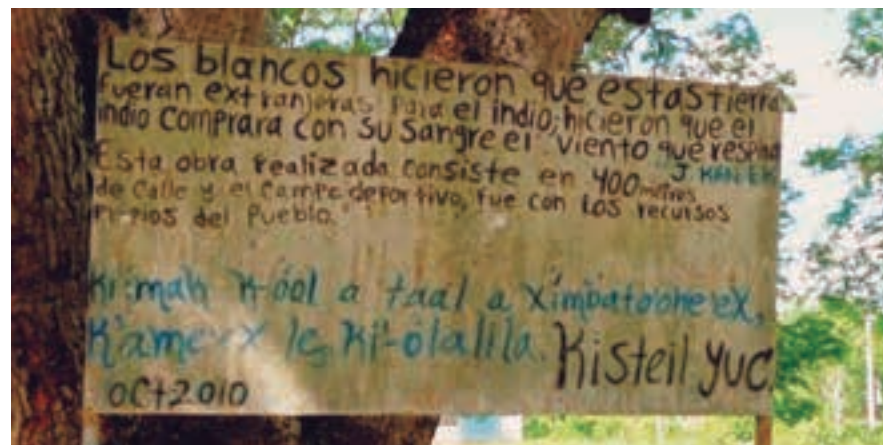 Los blancos hicieron que estas tierra
fueran extranjeras para el indio; hicieron que el
indio comprara con su sangre el viento que respira
J. KANEK
Esta obra realizada consiste en 400 metros
de calle y el campo deportivo, fue con los recursos
propios del Pueblo.
Ki'mak k-óol a taal a
K'ame'ex le ki'-óolalila.
Kisteil Yuc.
Oct 2010